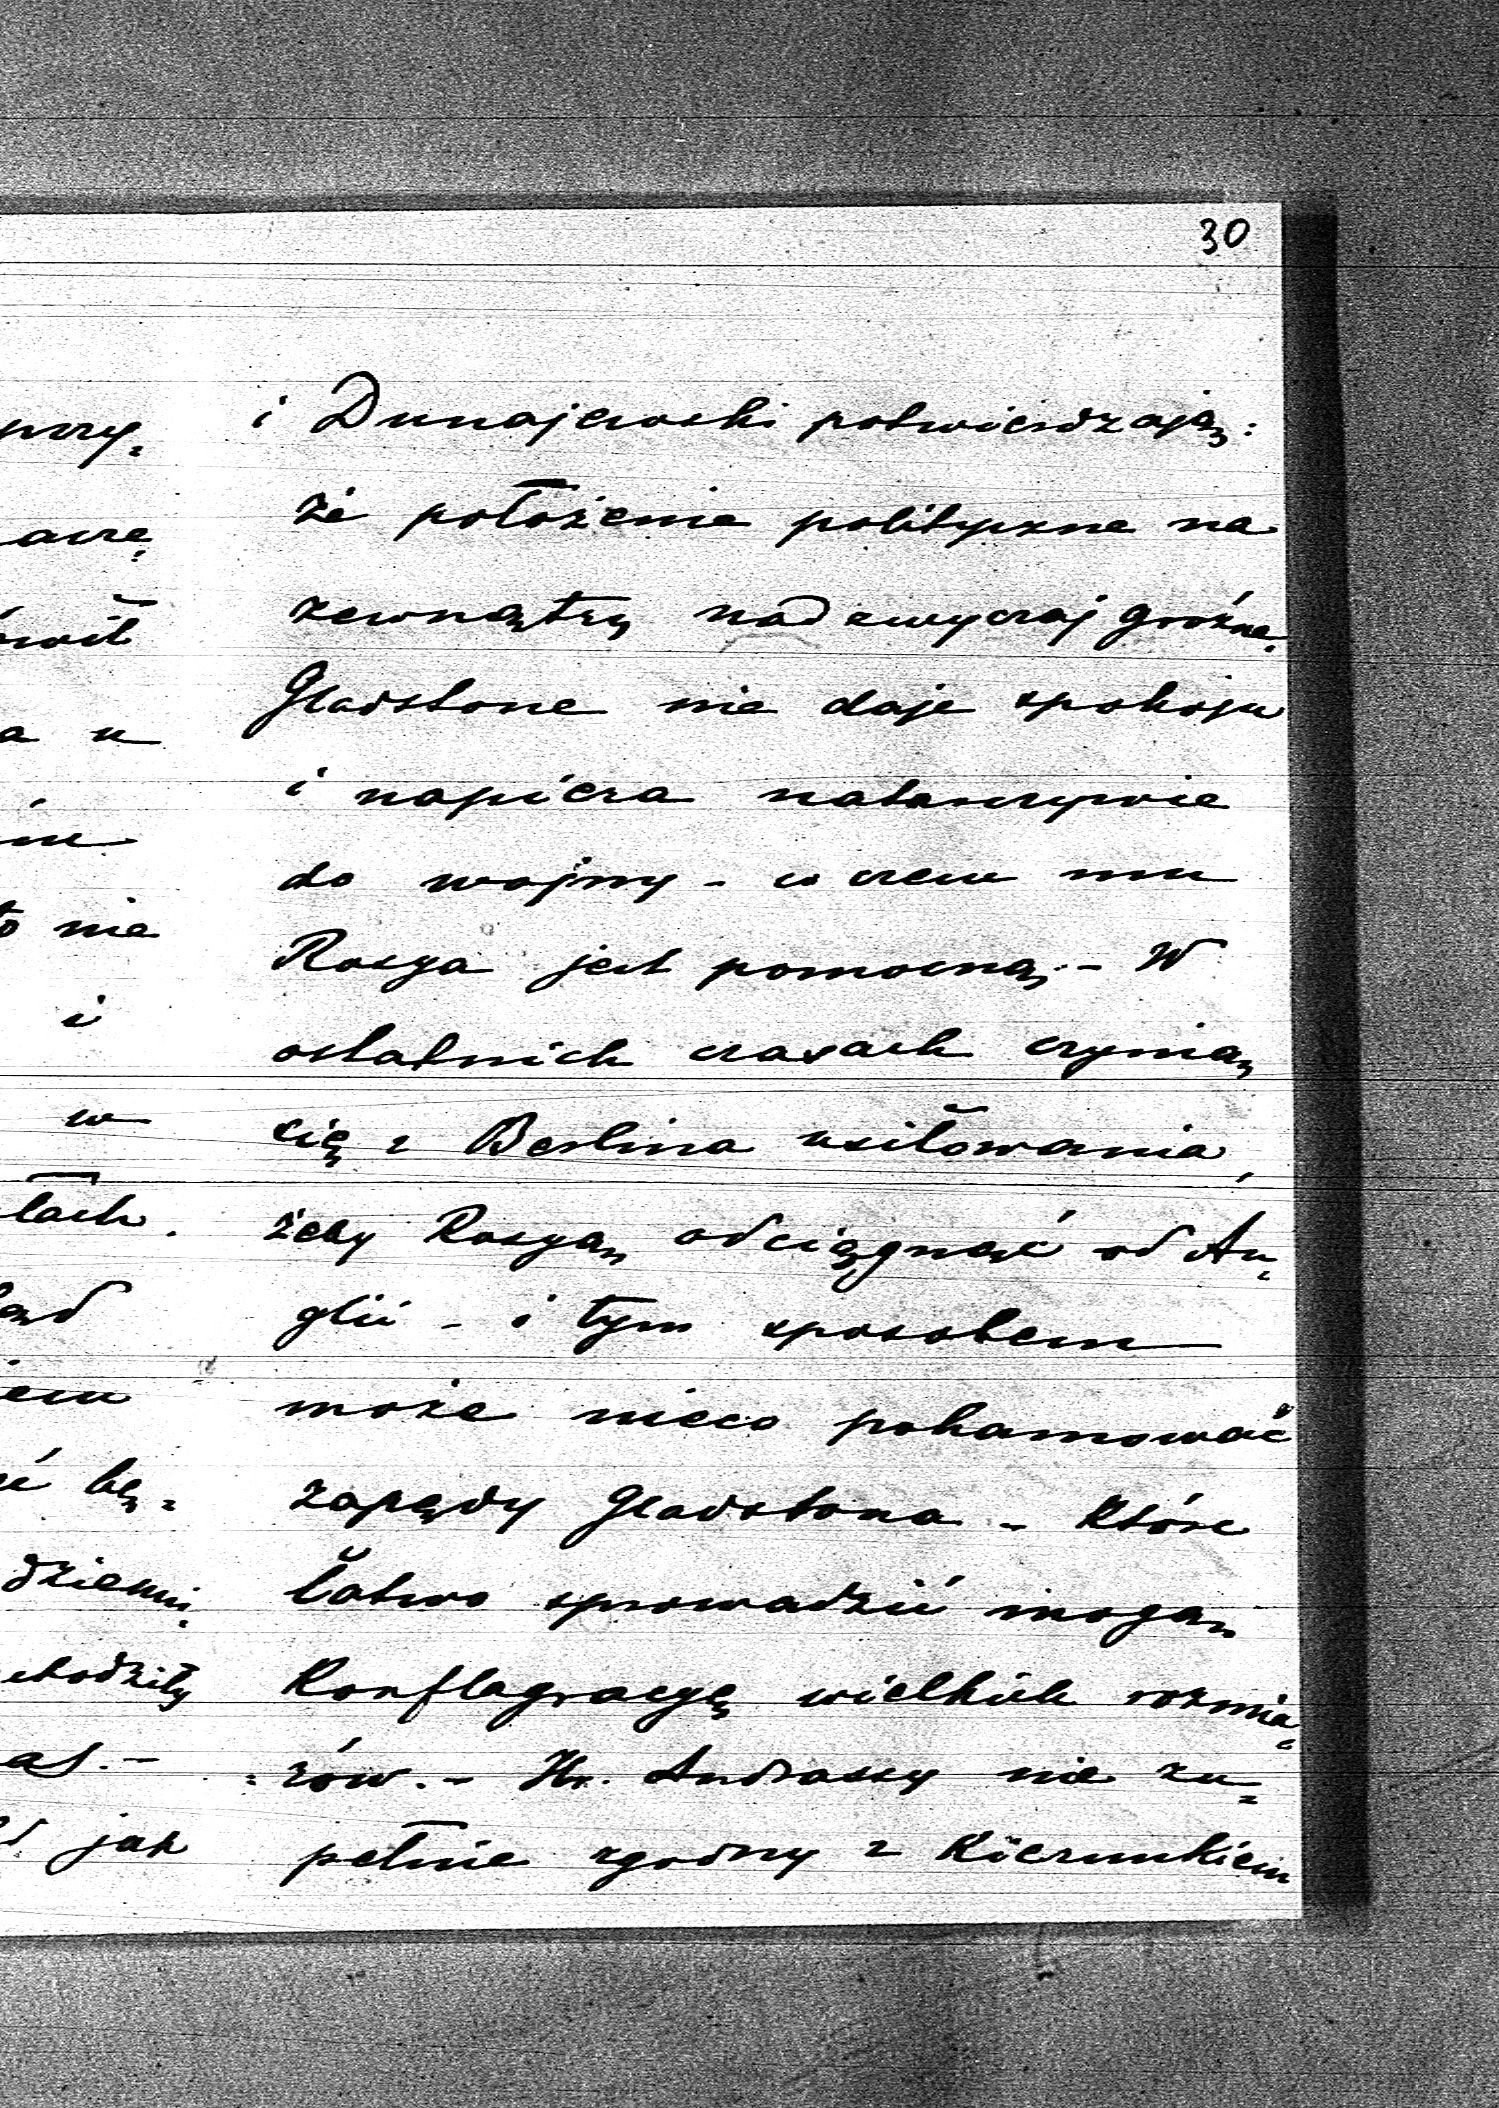 30
i Dunajewski potwierdzają:
że położenie polityczne na
zewnątrz nadzwyczaj groźne.
Gladstone nie daje spokoju
i napiera natarczywie
do wojny - w czem mu
Rosya jest pomocną. - W
ostatnich czasach czynią
się z Berlina usiłowania,
żeby Rosyą odciągnąć od An-
glii - i tym sposobem
może nieco pohamować
zapędy Gladstona - które
łatwo sprowadzić mogą
Konflagracyę wielkich rozmia-
rów. - Hr. Andrassy nie zu-
pełnie zgodny z kierunkiem
a u
to nie
i
w
jak